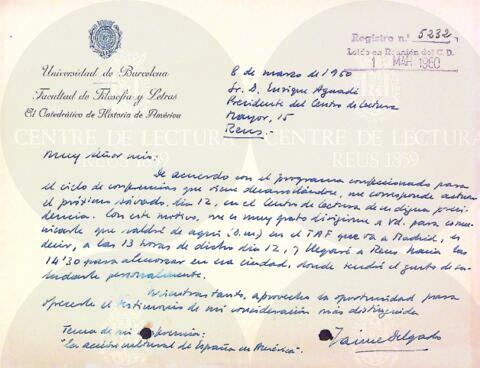 Universidad de Barcelona
Facultad de Filosofía y Letras
El Catedrático de Historia de América
Registro n.º 5232
Leído en Reunión del C.D.
1 MAR 1960
8 de marzo de 1960
Sr. D. Enrique Aguadé
Presidente del Centro de Lectura
Mayor, 15
Reus.-
Muy señor mío:
De acuerdo con el programa confeccionado para
el ciclo de conferencias que viene desarrollándose, me corresponde actuar
el próximo sábado, día 12, en el Centro de Lectura de su digna presi-
dencia. Con este motivo, me es muy grato dirigirme a Vd. para comu-
nicarle que saldré de aquí (D.m) en el TAF que va a Madrid, es
decir, a las 13 horas de dicho día 12, y llegaré a Reus hacia las
14'30 para almorzar en esa ciudad, donde tendré el gusto de sa-
ludarle personalmente.
Mientras tanto, aprovecho la oportunidad para
ofrecerle el testimonio de mi consideración más distinguida.
Jaime Delgado
Tema de mi conferencia:
"La acción cultural de España en América".
CENTRE DE LECTURA
REUS 1859
CENTRE DE LECTURA
REUS 1859